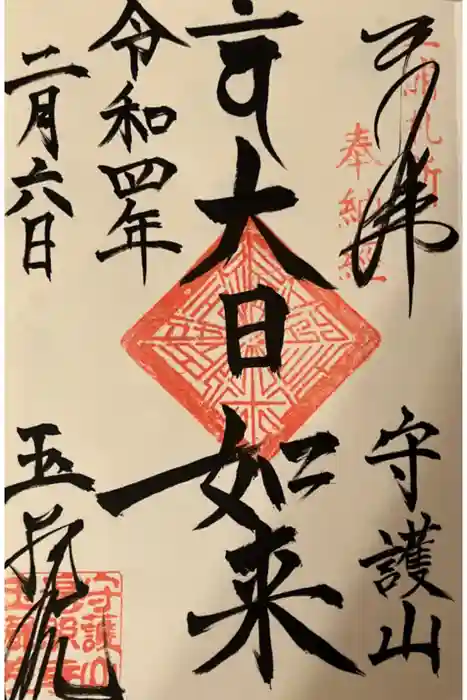 奉拝
奉納経
守護山
大日如来
令和四年
二月六日
玉蔵院